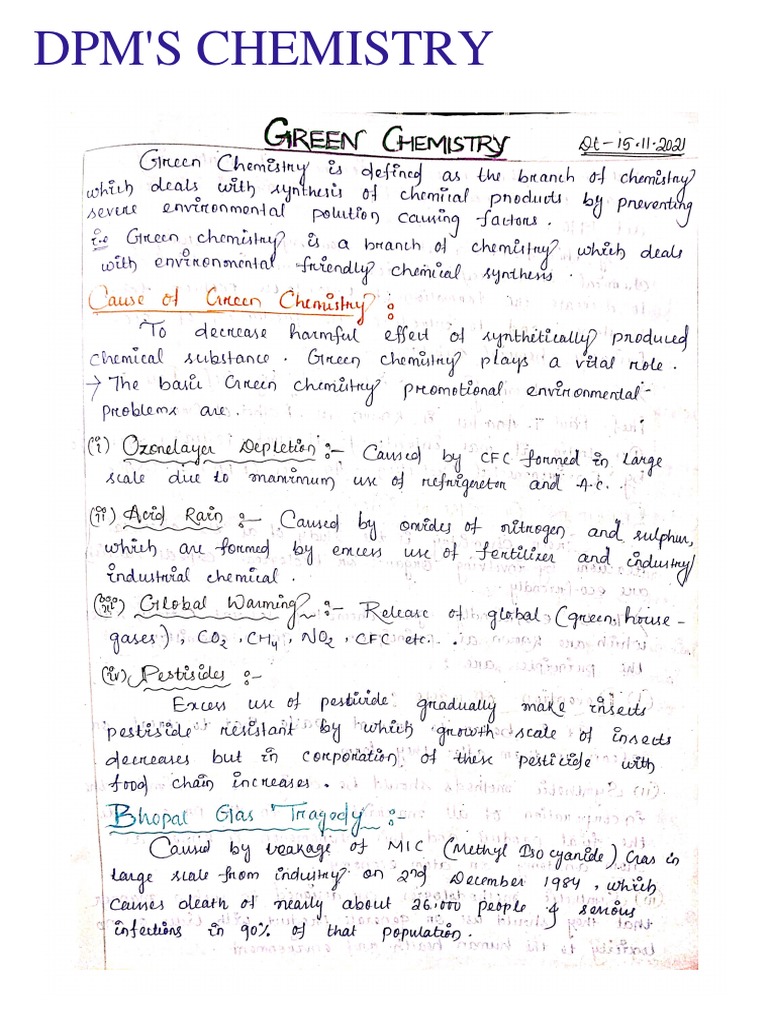 DPM'S CHEMISTRY
GREEN CHEMISTRY Dt-15.11.2021
Green Chemistry is defined as the branch of chemistry
which deals with synthesis of chemical products by preventing
severe environmental polution causing factors.
i.e Green chemistry is a branch of chemistry which deals
with environmental friendly chemical synthesis.
Cause of Green Chemistry :
To decrease harmful effect of synthitically produced
chemical substance. Green chemistry plays a vital role.
→ The basic Green chemistry promotional environmental-
problems are.
(i) Ozonelayer Depletion :- Caused by CFC formed in large
scale due to maximum use of refrigeretor and A.C.
(ii) Acid Rain :- Caused by oxides of nitrogen and sulphur,
which are formed by excess use of fertilizer and industry/
industrial chemical.
(iii) Global Warming :- Release of global (green house-
gases), CO2, CH4, NO2, CFC etc...
(iv) Pestisides :-
Excess use of pesticide gradually make insects
pestiside resistant by which growth scale of insects
decreases but in corporation of these pesticide with
food chain increases.
Bhopal Gas Tragody :-
Caused by leakage of MIC (Methyl Iso cyanide) Gas in
large scale from industry on 2nd December 1984, which
causes death of nearly about 26,000 people & serious
infections in 90% of that population.